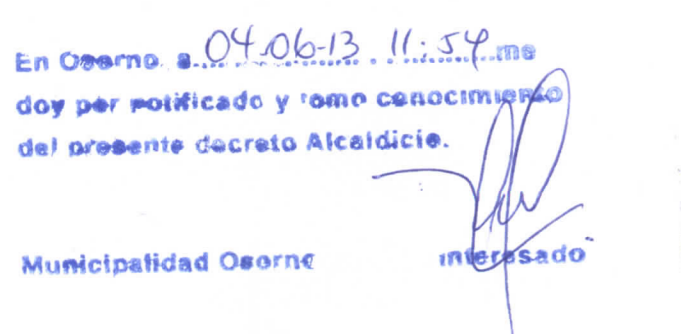 En Osorno, a 04-06-13 . 11:54 me
doy por notificado y tomo conocimiento
del presente decreto Alcaldicio.
Municipalidad Osorno Interesado